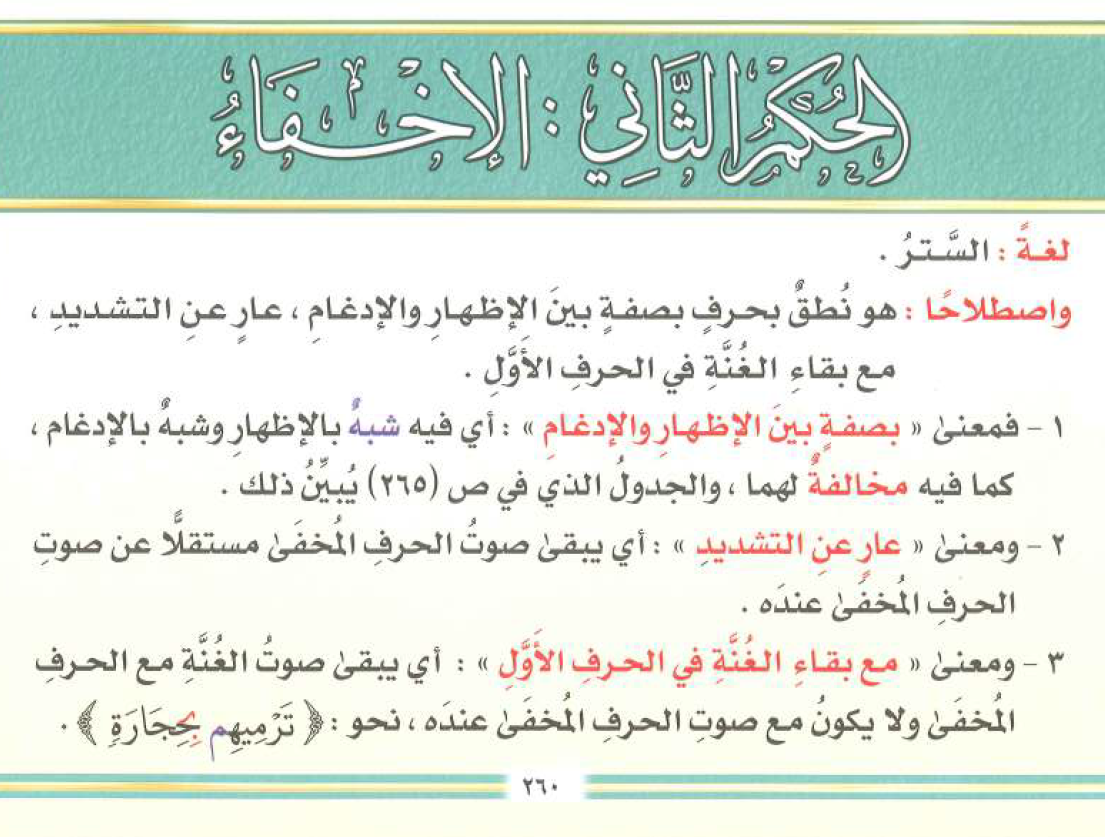 الحُكْمُ الثَّانِي : الإِخْفَاءُ
لغةً : السَّترُ .
واصطلاحًا : هو نُطقٌ بحرفٍ بصفةٍ بينَ الإِظهارِ والإدغامِ ، عارٍ عنِ التشديدِ ،
مع بقاءِ الغُنَّةِ في الحرفِ الأوَّلِ .
١ - فمعنىٰ « بصفةٍ بينَ الإظهارِ والإدغامِ » : أي فيه شبهٌ بالإظهارِ وشبهٌ بالإدغام ،
كما فيه مخالفةٌ لهما ، والجدولُ الذي في ص (٢٦٥) يُبيِّنُ ذلك .
٢ - ومعنىٰ « عارٍ عنِ التشديدِ » : أي يبقىٰ صوتُ الحرفِ المُخفَىٰ مستقلًّا عن صوتِ
الحرفِ المُخفَىٰ عندَه .
٣ - ومعنىٰ « مع بقاءِ الغُنَّةِ في الحرفِ الأوَّلِ » : أي يبقىٰ صوتُ الغُنَّةِ مع الحرفِ
المُخفَىٰ ولا يكونُ مع صوتِ الحرفِ المُخفَىٰ عندَه ، نحو : ﴿ تَرْمِيهِم بِحِجَارَةٍ ﴾ .
٢٦٠